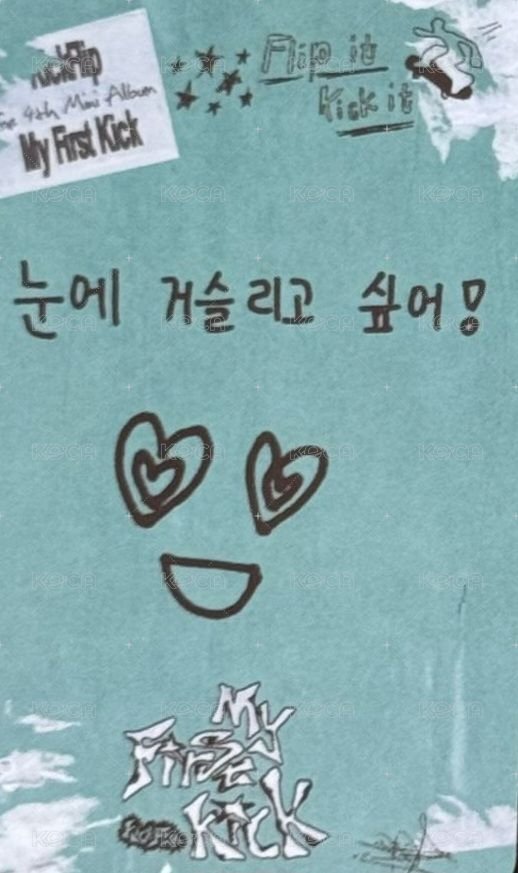 KickFlip
The 4th Mini Album
My First Kick
Flip it
Kick it
눈에 거슬리고 싶어!
My
First
Kick